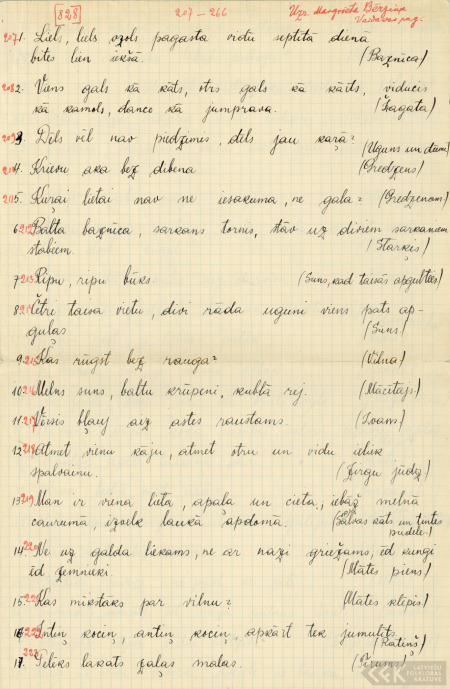 828
207 — 266
Uzr. Margrieta Bērziņa
Vaidavas pag.
207 1. Liels, liels ozols pagasta vidū septītā dienā
bites lien iekšā. (Baznīca)
208 2. Viens gals kā kāts, otrs gals kā kāts, viducis
kā kamols, danco kā jumprava. (Žagata)
209 3. Dēls vēl nav piedzimis, dēls jau kaŗā? (Uguns un dūmi)
210 4. Krievu aka bez dibena (Gredzens)
211 5. Kuŗai lietai nav ne iesākuma, ne gala? (Gredzenam)
6 212 Balta baznīca, sarkans tornis, stāv uz diviem sarkaniem
stabiem. (Stārķis)
7 213 Ripu, ripu būks (Suns, kad taisās apgulties)
8 214 Četri taisa vietu, divi rāda uguni viens pats ap-
guļas (Suns)
9 215 Kas rūgst bez rauga? (Vilna)
10 216 Melns suns, baltu krūpeni, kublā rej. (Mācītājs)
11 217 Vērsis bļauj aiz astes raustams. (Zvans)
12 218 Atmet vienu kāju, atmet otru un vidū ieliek
spalvainu. (Zirgu jūdz)
13 219 Man ir viena lieta, apaļa un cieta, iebāž melnā
caurumā, izvelk laukā apdomā. (Spalvas kāts un tintes
pudele)
14 220 Ne uz galda liekams, ne ar nazi griežams, ēd kungi
ēd zemnieki. (Mātes piens)
15. 221 Kas mīkstāks par vilnu? (Mātes klēpis)
16 222 Antiņ kociņ, antiņ kociņ apkārt tek jumalīts (Ratiņš)
17. 223 Pelēks lakats zaļas malas. (Tīrums)
LATVIEŠU
FOLKLORAS
KRĀTUVE